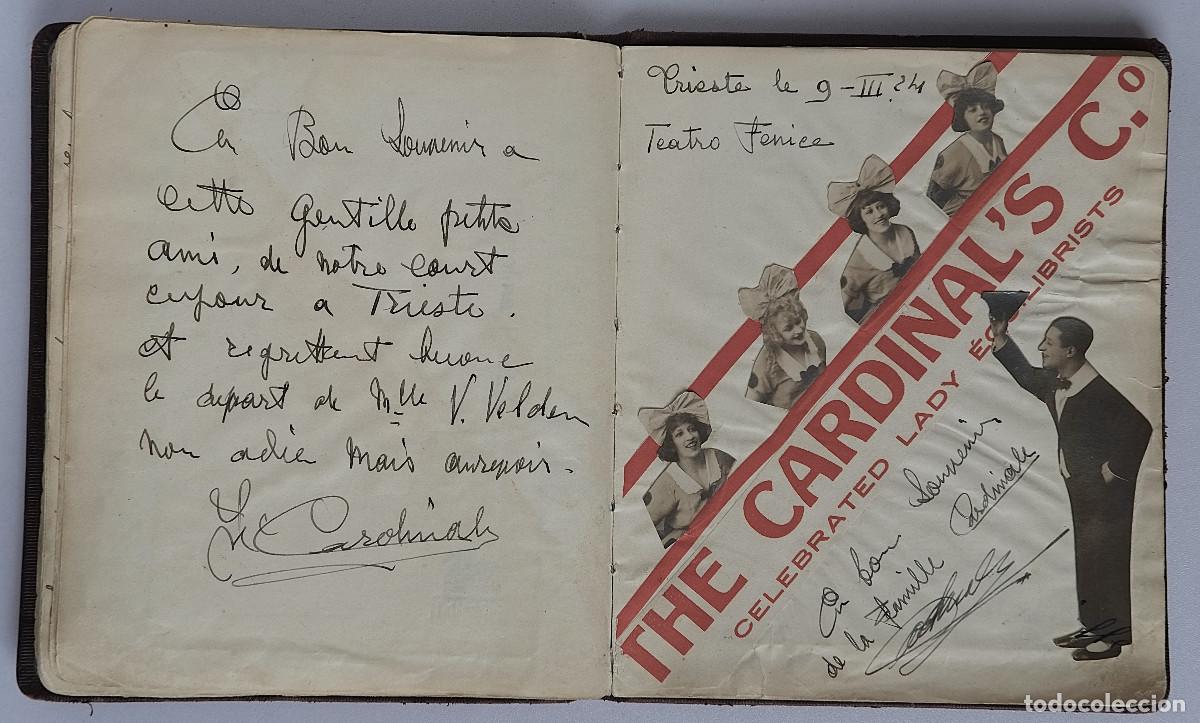 En Bon Souvenir a
cette gentille petite
ami, de notre court
a Trieste.
et regrettent
le depart de Mlle V. Velden
non adieu mais aurevoir.
Cardinale
Trieste le 9-III.24
Teatro Fenice
THE CARDINAL'S C.º
CELEBRATED LADY ÉQUILIBRISTS
En bon Souvenir
de la Famille Cardinale
todocoleccion